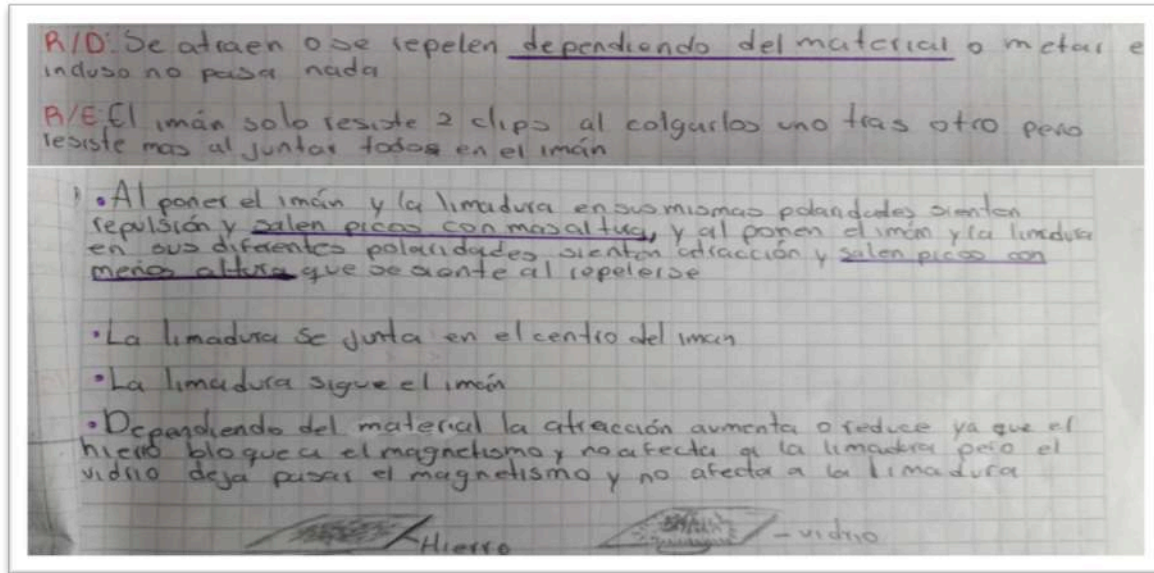 R/D: Se atraen o se repelen dependiendo del material o metal e
incluso no pasa nada
R/E: El imán solo resiste 2 clips al colgarlos uno tras otro pero
resiste mas al juntar todos en el imán
• Al poner el imán y la limadura en sus mismas polaridades sienten
repulsión y salen picos con mas altura, y al ponen el imán y la limadura
en sus diferentes polaridades sienten atracción y salen picos con
menos altura que se siente al repelerse
• La limadura se junta en el centro del iman
• La limadura sigue el imán
• Dependiendo del material la atracción aumenta o reduce ya que el
hierro bloquea el magnetismo y no afecta a la limadura pero el
vidrio deja pasar el magnetismo y no afecta a la limadura
Hierro
- vidrio